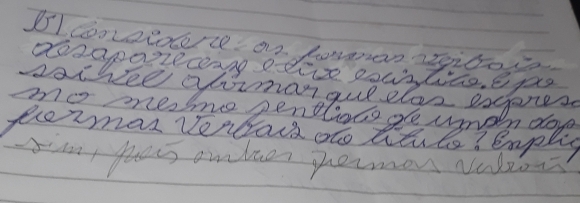 b) Considere as formas verbais
desaparecesse e tive existido. É po
ssível afirmar que elas expresa
mo mesmo sentido de uman das
formas verbais do título? Expliq
sim, pois ambas formas verbais